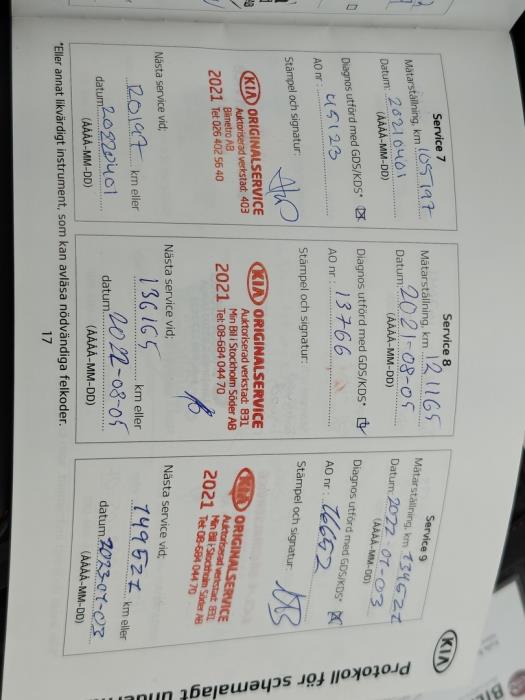 Protokoll för schemalagt under
KIA
Service 7
Mätarställning, km 105197
Datum: 20210401
(ÅÅÅÅ-MM-DD)
Diagnos utförd med GDS/KDS* ☒
AO nr: 45123
Stämpel och signatur:
KIA ORIGINALSERVICE
Auktoriserad verkstad: 403
Bilmetro AB
2021 Tel: 026 402 56 40
Nästa service vid;
120197 km eller
datum: 20220401
(ÅÅÅÅ-MM-DD)
Service 8
Mätarställning, km 121165
Datum: 2021-08-05
(ÅÅÅÅ-MM-DD)
Diagnos utförd med GDS/KDS* ☑
AO nr: 13766
Stämpel och signatur:
KIA ORIGINALSERVICE
Auktoriserad verkstad: 831
Min Bil i Stockholm Söder AB
2021 Tel: 08-684 044 70
Nästa service vid;
136165 km eller
datum: 2022-08-05
(ÅÅÅÅ-MM-DD)
Service 9
Mätarställning, km 134527
Datum: 2022-01-03
(ÅÅÅÅ-MM-DD)
Diagnos utförd med GDS/KDS* ☒
AO nr: 16652
Stämpel och signatur:
KIA ORIGINALSERVICE
Auktoriserad verkstad: 831
Min Bil i Stockholm Söder AB
2021 Tel: 08-684 044 70
Nästa service vid;
149527 km eller
datum: 2023-01-03
(ÅÅÅÅ-MM-DD)
*Eller annat likvärdigt instrument, som kan avläsa nödvändiga felkoder.
17